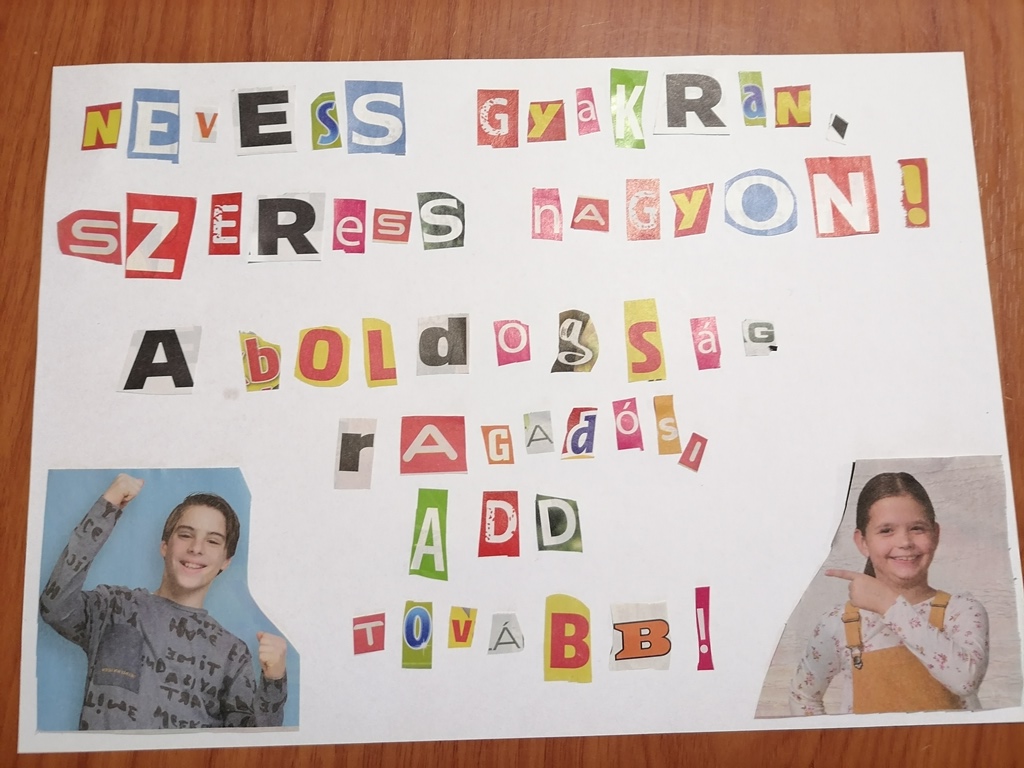 NEvESS GyaKRaN,
SZEResS nAGyON!
A bOLdogSáG
rAGAdóS,
ADD
TOVÁBB!